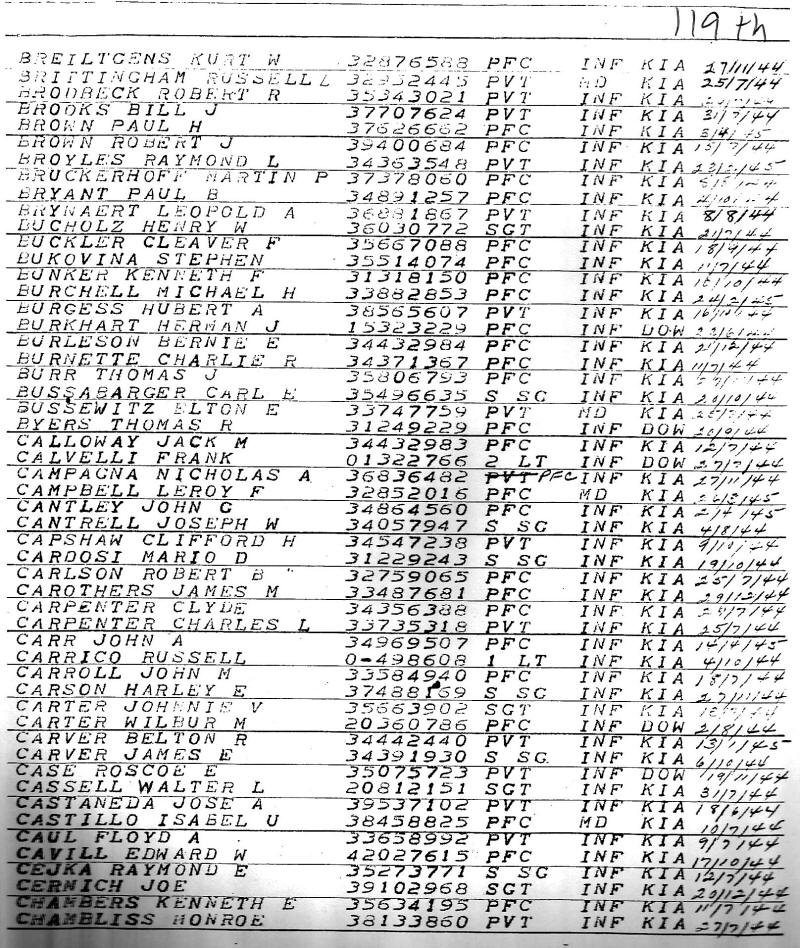 119th
BREILTGENS KURT W 32876588 PFC INF KIA 27/11/44
BRITTINGHAM RUSSELL L 32932445 PVT MD KIA 25/7/44
BRODBECK ROBERT R 35343021 PVT INF KIA
BROOKS BILL J 37707624 PVT INF KIA 31/7/44
BROWN PAUL H 37626662 PFC INF KIA 3/4/45
BROWN ROBERT J 39400684 PFC INF KIA 15/7/44
BROYLES RAYMOND L 34363548 PVT INF KIA
BRUCKERHOFF MARTIN P 37378060 PFC INF KIA
BRYANT PAUL B 34891257 PFC INF KIA
BRYNAERT LEOPOLD A 36881867 PVT INF KIA 8/8/44
BUCHOLZ HENRY W 36030772 SGT INF KIA 21/7/44
BUCKLER CLEAVER F 35667088 PFC INF KIA 18/9/44
BUKOVINA STEPHEN 35514074 PFC INF KIA 11/7/44
BUNKER KENNETH F 31318150 PFC INF KIA 16/10/44
BURCHELL MICHAEL H 33882853 PFC INF KIA 24/2/45
BURGESS HUBERT A 38565607 PVT INF KIA 16/10/44
BURKHART HERMAN J 15323229 PFC INF DOW
BURLESON BERNIE E 34432984 PFC INF KIA 21/12/44
BURNETTE CHARLIE R 34371367 PFC INF KIA 11/7/44
BURR THOMAS J 35806793 PFC INF KIA
BUSSABARGER CARL E 35496635 S SG INF KIA 20/10/44
BUSSEWITZ ELTON E 33747759 PVT MD KIA
BYERS THOMAS R 31249229 PFC INF DOW 20/9/44
CALLOWAY JACK M 34432983 PFC INF KIA 12/7/44
CALVELLI FRANK 01322766 2 LT INF DOW 27/7/44
CAMPAGNA NICHOLAS A 36836482 PVT PFC INF KIA 27/11/44
CAMPBELL LEROY F 32852016 PFC MD KIA 26/3/45
CANTLEY JOHN G 34864560 PFC INF KIA 2/4/45
CANTRELL JOSEPH W 34057947 S SG INF KIA 4/8/44
CAPSHAW CLIFFORD H 34547238 PVT INF KIA 9/10/44
CARDOSI MARIO D 31229243 S SG INF KIA 19/10/44
CARLSON ROBERT B 32759065 PFC INF KIA 25/7/44
CAROTHERS JAMES M 33487681 PFC INF KIA 29/12/44
CARPENTER CLYDE 34356388 PFC INF KIA
CARPENTER CHARLES L 33735318 PVT INF KIA 25/7/44
CARR JOHN A 34969507 PFC INF KIA 14/4/45
CARRICO RUSSELL 0-498608 1 LT INF KIA 4/10/44
CARROLL JOHN M 33584940 PFC INF KIA 18/7/44
CARSON HARLEY E 37488169 S SG INF KIA 27/11/44
CARTER JOHNNIE V 35663902 SGT INF KIA
CARTER WILBUR M 20360786 PFC INF DOW 2/8/44
CARVER BELTON R 34442440 PVT INF KIA 13/1/45
CARVER JAMES E 34391930 S SG INF KIA 6/10/44
CASE ROSCOE E 35075723 PVT INF DOW 19/11/44
CASSELL WALTER L 20812151 SGT INF KIA 31/7/44
CASTANEDA JOSE A 39537102 PVT INF KIA 18/6/44
CASTILLO ISABEL U 38458825 PFC MD KIA 10/7/44
CAUL FLOYD A 33658992 PVT INF KIA 9/7/44
CAVILL EDWARD W 42027615 PFC INF KIA 17/10/44
CEJKA RAYMOND E 35273771 S SG INF KIA 12/7/44
CERNICH JOE 39102968 SGT INF KIA 20/12/44
CHAMBERS KENNETH E 35634195 PFC INF KIA 11/7/44
CHAMBLISS MONROE 38133860 PVT INF KIA 27/7/44